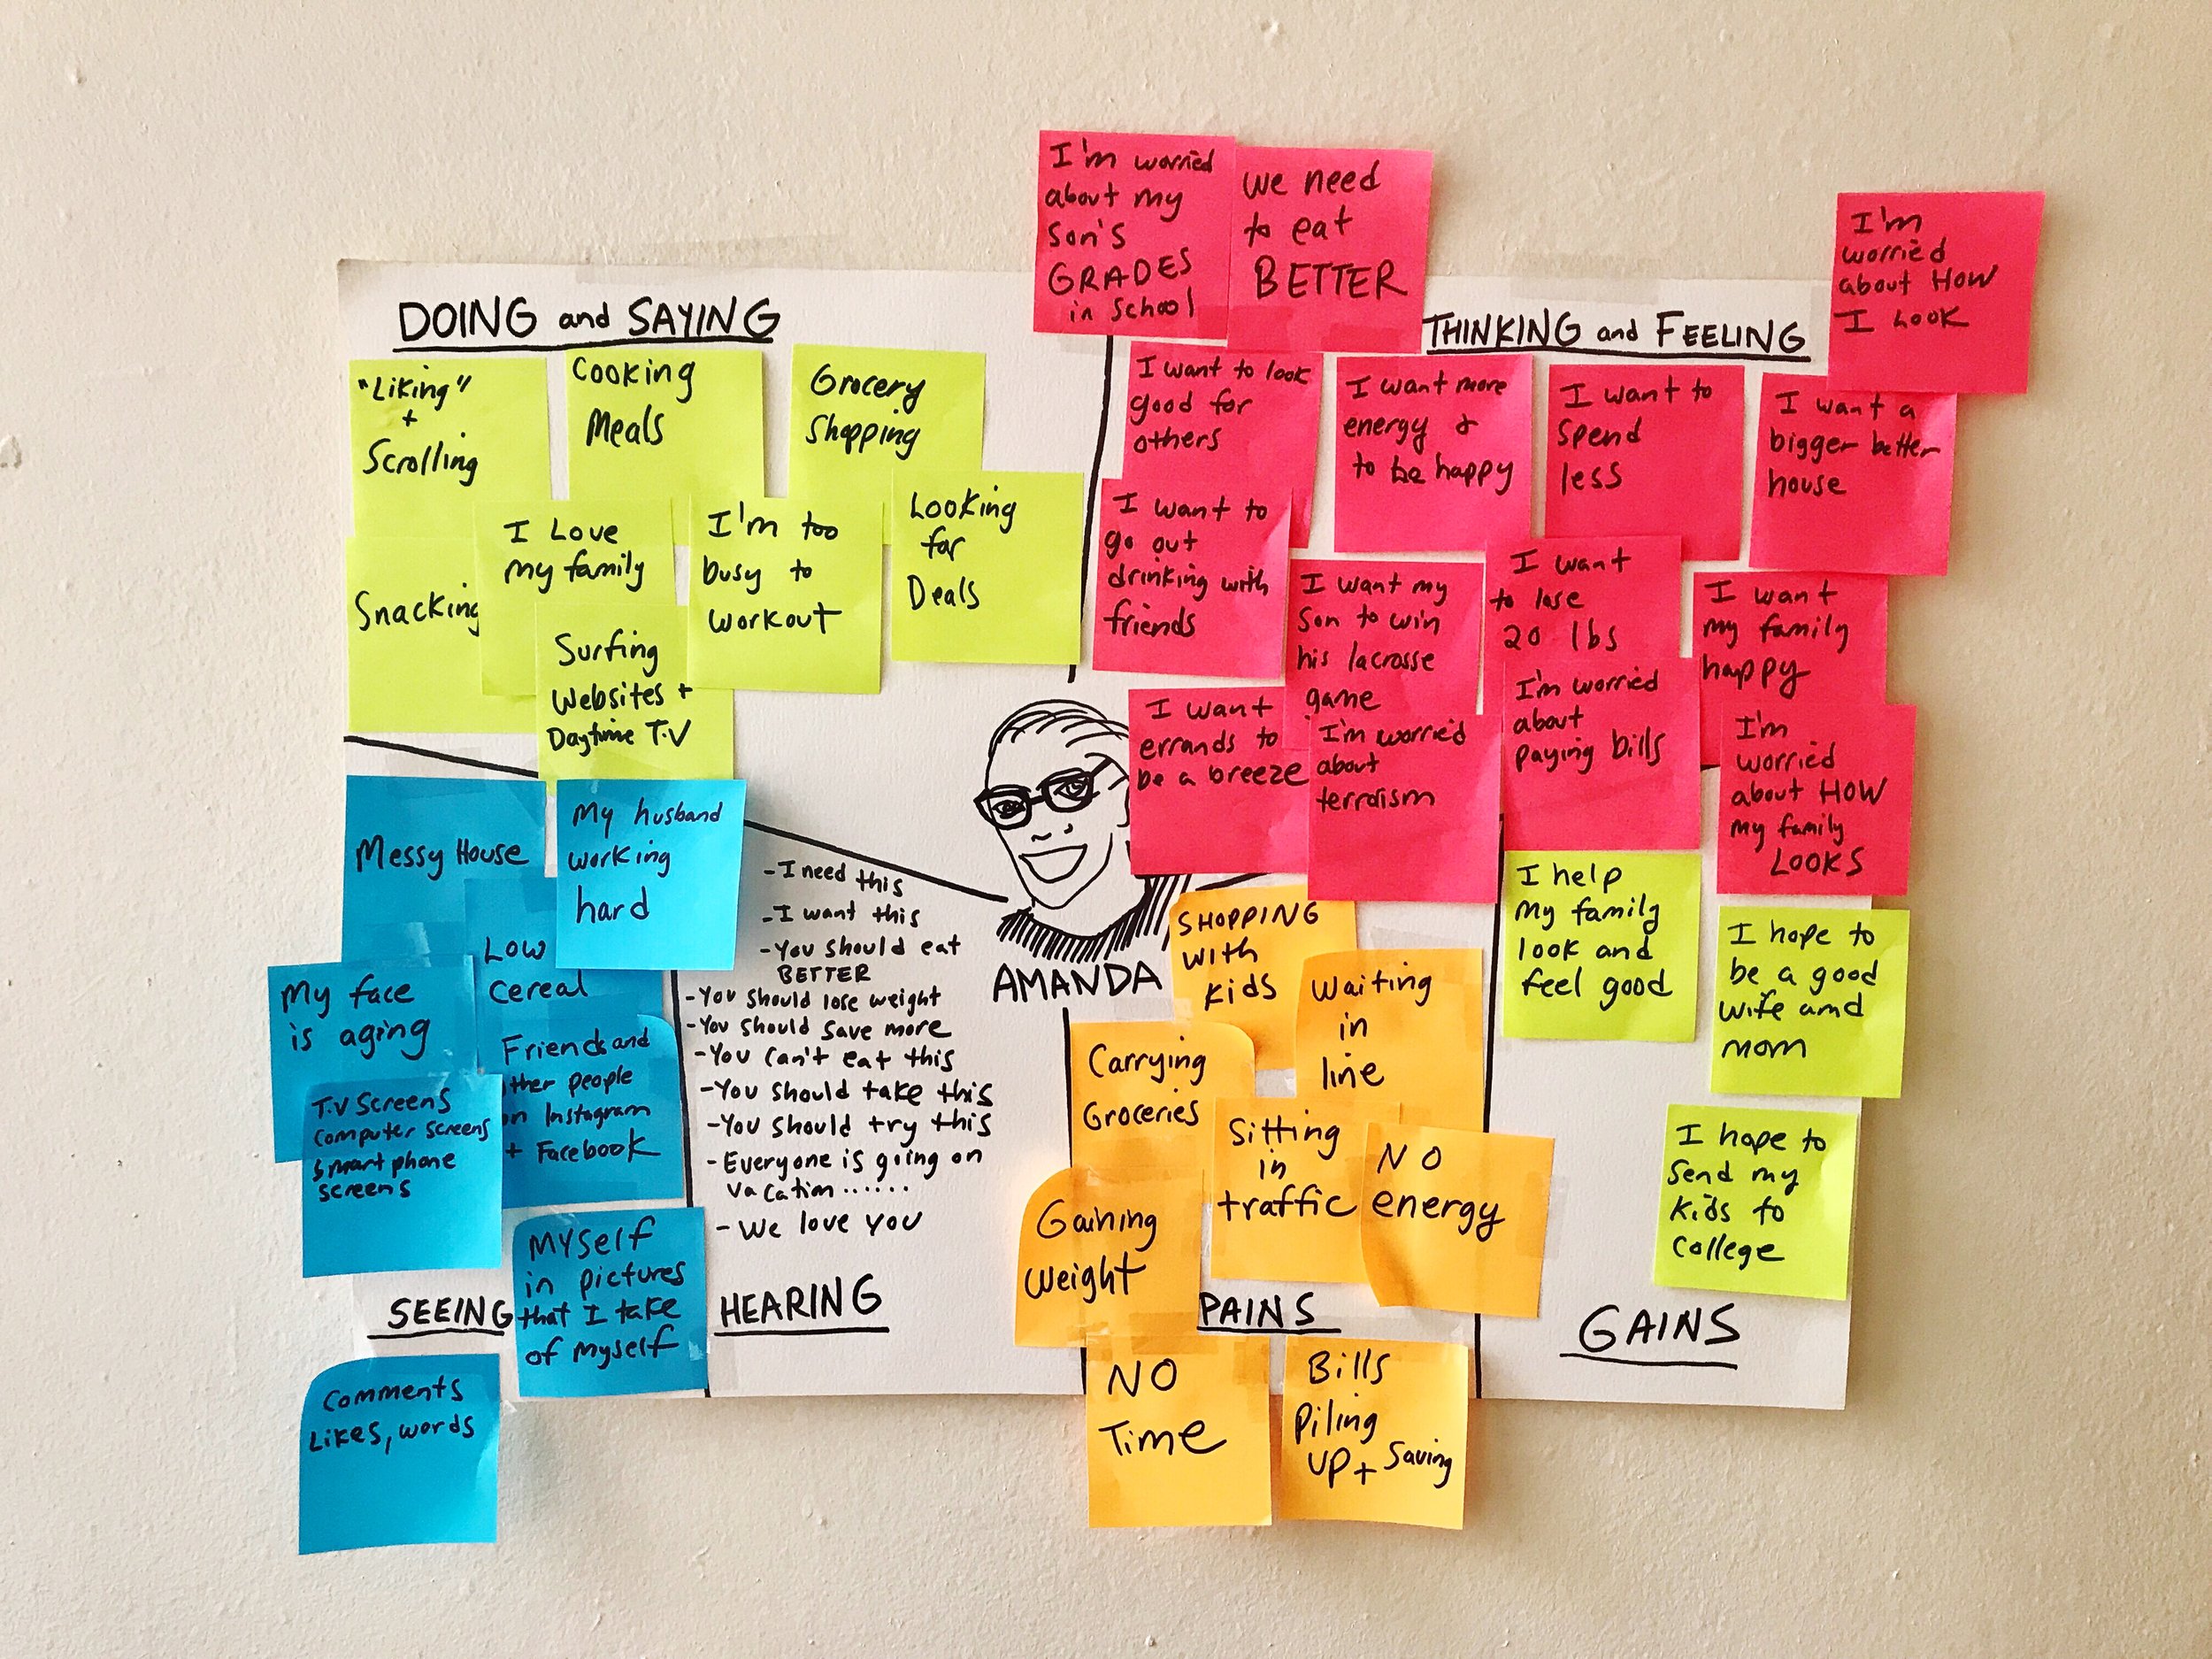 DOING and SAYING
"Liking"
+
Scrolling
Cooking
Meals
Grocery
Shopping
Snacking
I Love
my family
I'm too
busy to
workout
Looking
for
Deals
Surfing
Websites +
Daytime T.V
I'm worried
about my
son's
GRADES
in school
we need
to eat
BETTER
THINKING and FEELING
I'm
worried
about HOW
I LOOK
I want to look
good for
others
I want more
energy &
to be happy
I want to
spend
less
I want a
bigger better
house
I want to
go out
drinking with
friends
I want my
son to win
his lacrosse
game
I want
to lose
20 lbs
I want
my family
happy
I want
errands to
be a breeze
I'm worried
about
terrorism
I'm worried
about
paying bills
I'm
worried
about HOW
my family
LOOKS
Messy House
My husband
working
hard
Low
cereal
My face
is aging
Friends and
ther people
on Instagram
+ Facebook
T.V Screens
Computer screens
smart phone
screens
Myself
in pictures
that I take
of myself
SEEING
Comments
Likes, words
- I need this
- I want this
- You should eat
BETTER
- You should lose weight
- You should save more
- You can't eat this
- You should take this
- You should try this
- Everyone is going on
vacation......
- We love you
HEARING
AMANDA
SHOPPING
with
kids
Waiting
in
line
Carrying
Groceries
Sitting
in
traffic
NO
energy
Gaining
weight
PAINS
NO
Time
Bills
piling
UP + Saving
I help
my family
look and
feel good
I hope to
be a good
wife and
mom
I hope to
send my
kids to
college
GAINS